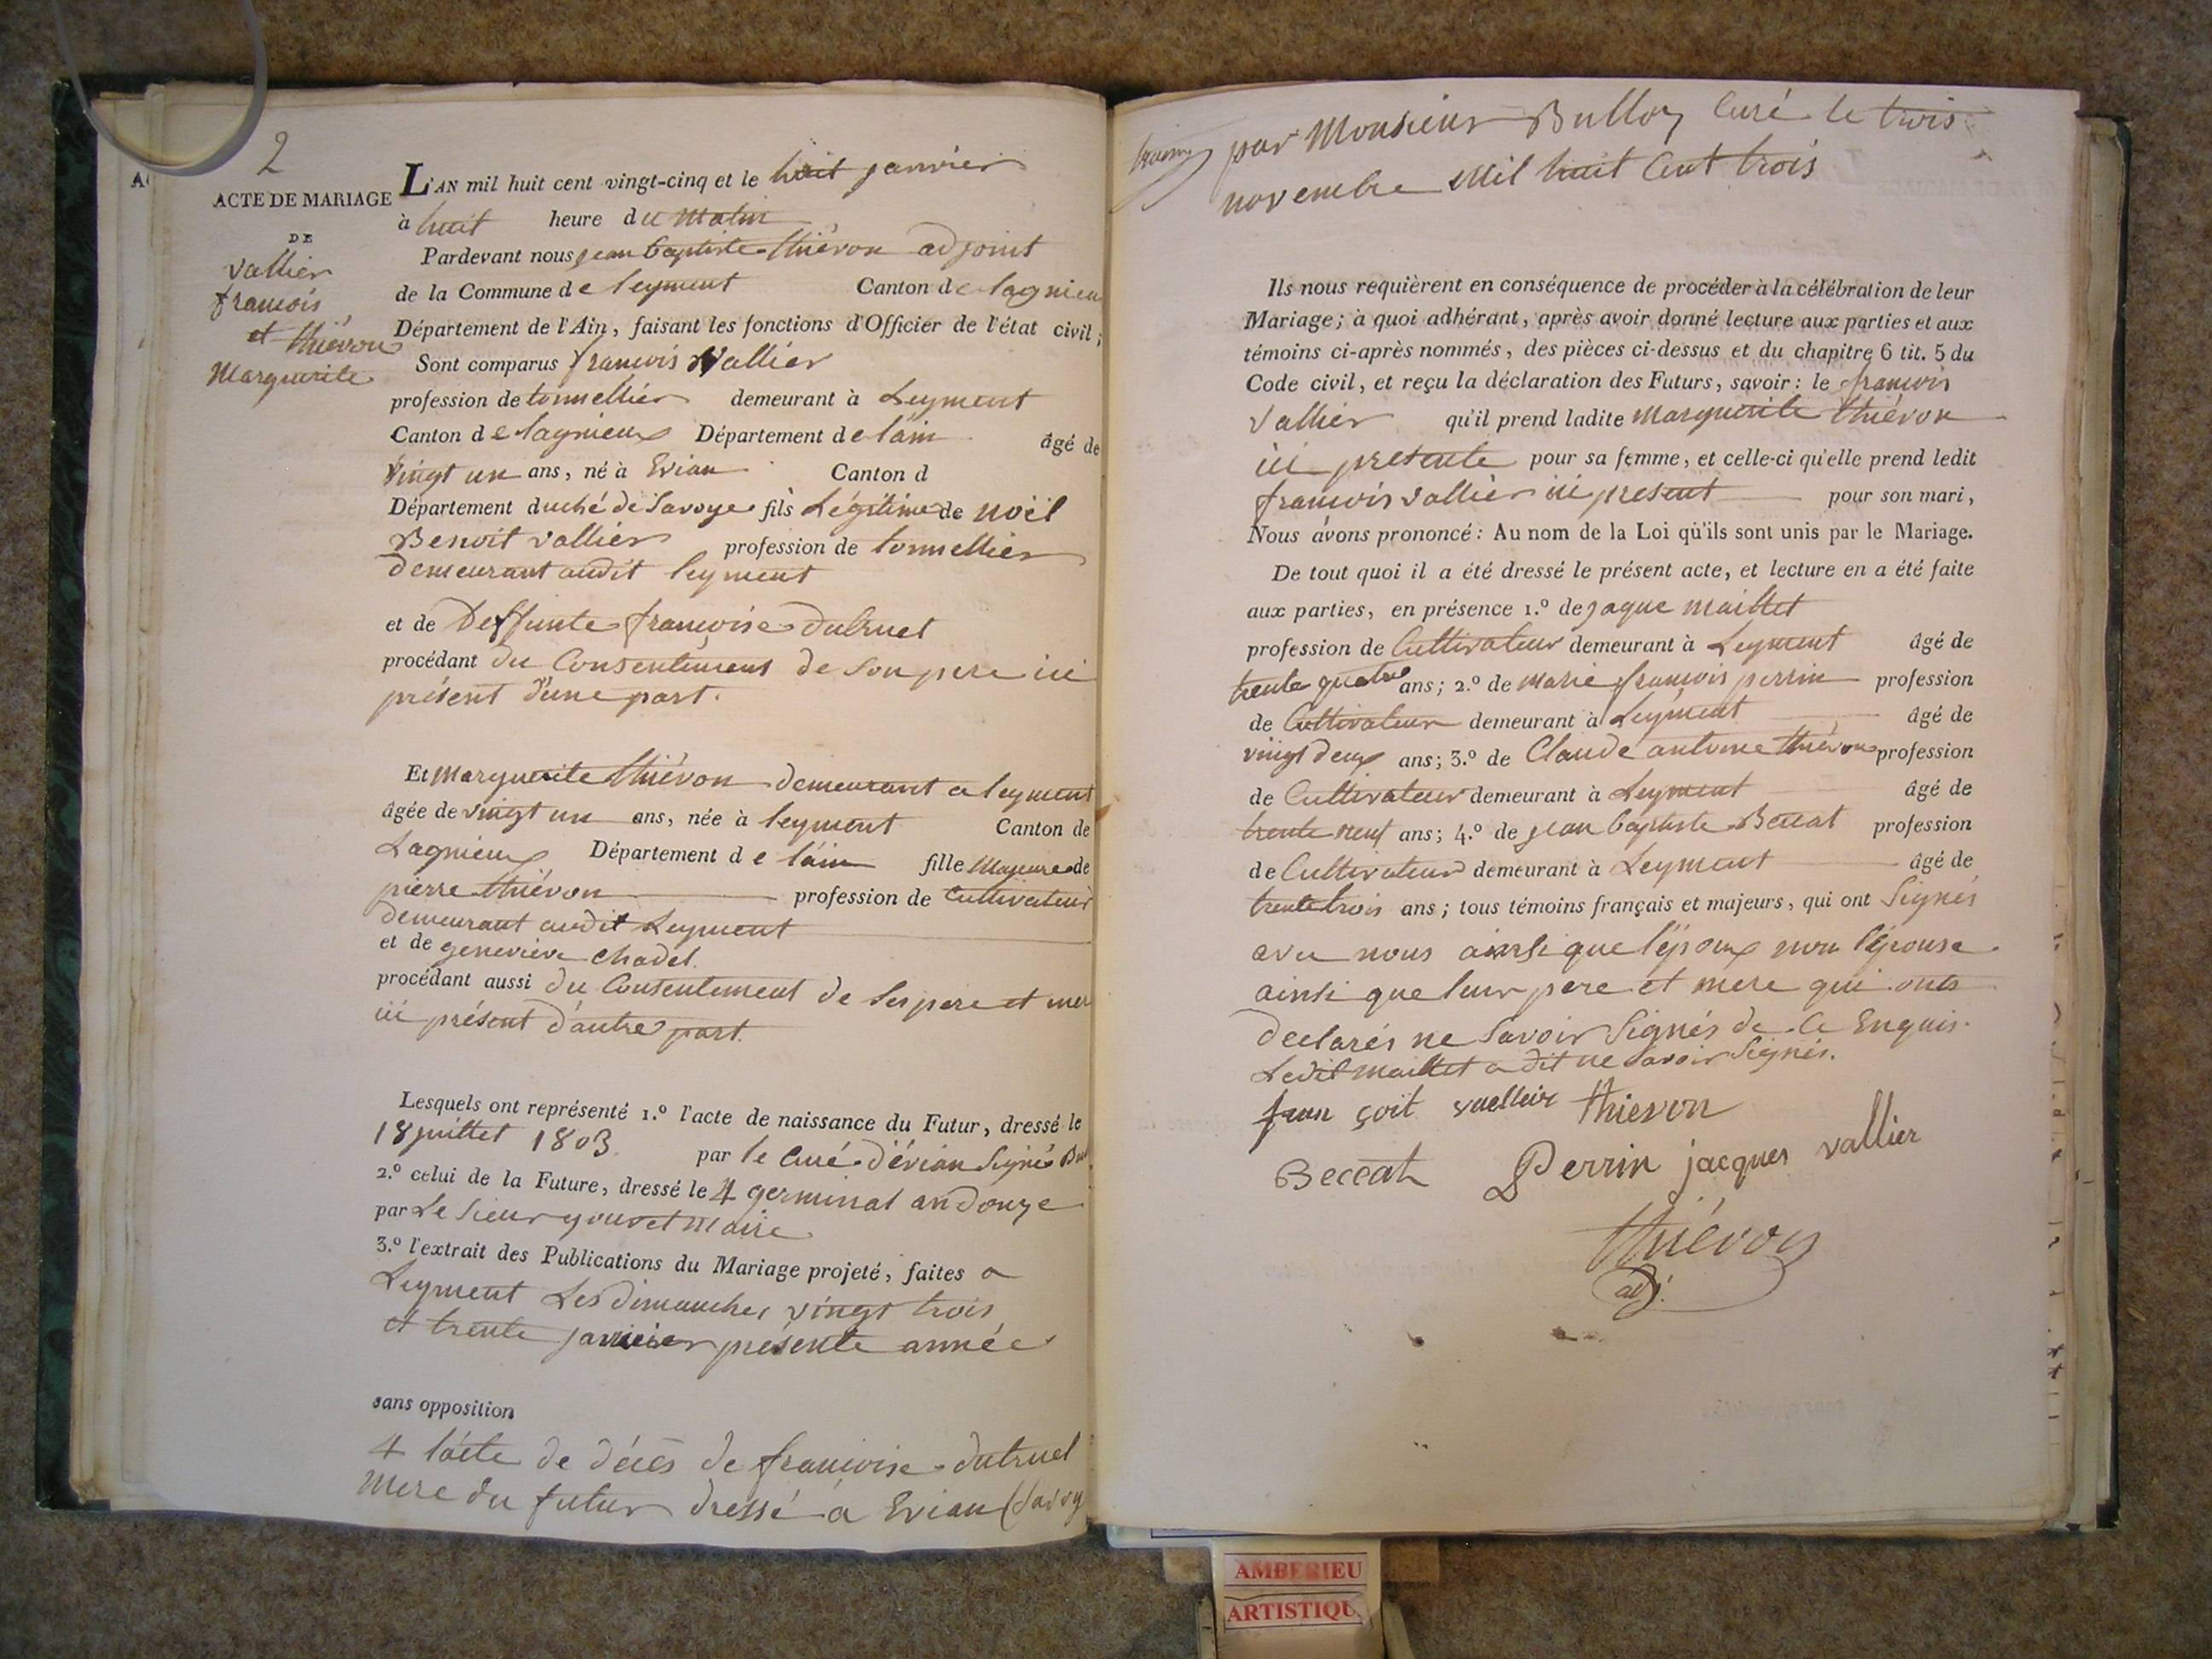 2
ACTE DE MARIAGE
DE
vallier
francois
et thiévon
Marguerite
L'AN mil huit cent vingt-cinq et le huit janvier
à huit heure du matin
Pardevant nous jean baptiste thiévon adjoint
de la Commune de leyment Canton de lagnieu
Département de l'Ain, faisant les fonctions d'Officier de l'état civil;
Sont comparus francois Vallier
profession de tonnellier demeurant à Leyment
Canton de lagnieux Département de láin âgé de
vingt un ans, né à Evian Canton d
Département duché de Savoye fils Légitime de noël
Benoit vallier profession de tonnellier
demeurant audit leyment
et de Deffunte francoise dutruel
procédant du Consentement de Son pere ici
présent d'une part.
Et Marguerite thiévon demeurant a leyment
âgée de vingt un ans, née à leyment Canton de
Lagnieux Département de láin fille Majeure de
pierre thiévon profession de Cultivateur
demeurant audit Leyment
et de genevieve chadel
procédant aussi du Consentement de Ses pere et mer
ici présent d'autre part.
Lesquels ont représenté 1.º l'acte de naissance du Futur, dressé le
18 juillet 1803. par le Curé d'évian Signé Bul
2.º celui de la Future, dressé le 4 germinal an douze
par Le Sieur youvet maire
3.º l'extrait des Publications du Mariage projeté, faites a
Leyment Les dimanches vingt trois
et trente janvier présente année
sans opposition
4 lácte de décés de francoise dutruel
Mere du futur dressé á Evian (Savoy
par Monsieur Bulloz Curé le trois
novembre Mil huit Cent trois
Ils nous requièrent en conséquence de procéder à la célébration de leur
Mariage; à quoi adhérant, après avoir donné lecture aux parties et aux
témoins ci-après nommés, des pièces ci-dessus et du chapitre 6 tit. 5 du
Code civil, et reçu la déclaration des Futurs, savoir: le francois
Vallier qu'il prend ladite marguerite thiévon
ici presente pour sa femme, et celle-ci qu'elle prend ledit
francois vallier ici present pour son mari,
Nous avons prononcé: Au nom de la Loi qu'ils sont unis par le Mariage.
De tout quoi il a été dressé le présent acte, et lecture en a été faite
aux parties, en présence 1.º de jaque maillet
profession de Cultivateur demeurant à Leyment âgé de
trente quatre ans; 2.º de marie francois perrin profession
de Cultivateur demeurant à Leyment âgé de
vingt deux ans; 3.º de Claude antoine thiévon profession
de Cultivateur demeurant à Leyment âgé de
trente neuf ans; 4.º de jean baptiste Beccat profession
de Cultivateur demeurant à Leyment âgé de
trente trois ans; tous témoins français et majeurs, qui ont Signés
avec nous ainsi que l'époux non l'épouse
ainsi que leur pere et mere qui onts
declarés ne Savoir Signés de Ce Enquis.
Ledit maillet a dit ne Savoir Signés.
fran çoit vuelleir thievon
Beccat Perrin jacques vallier
thiévon
adj.
AMBERIEU
ARTISTIQU